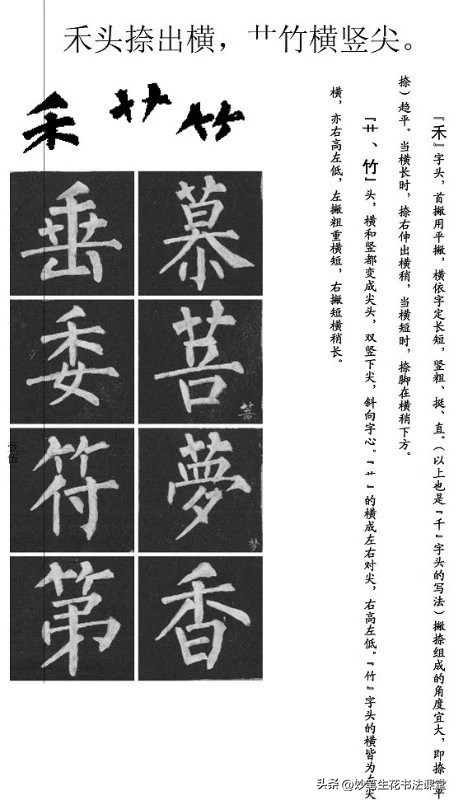 禾头捺出横，艹竹横竖尖。
禾 艹 竹
『禾』字头，首撇用平撇，横依字定长短，竖粗、挺、直。（以上也是『千』字头的写法）撇捺组成的角度宜大，即捺（平
捺）趋平。当横长时，捺右伸出横稍，当横短时，捺脚在横稍下方。
『艹、竹』头，横和竖都变成尖头，双竖下尖，斜向字心。『艹』的横成左右对尖，右高左低。『竹』字头的横皆为左尖
横，亦右高左低，左撇粗重横短，右撇短横稍长。
垂 慕
委 菩
菩
符 夢
梦
第 香
头条 @妙笔生花书法课堂